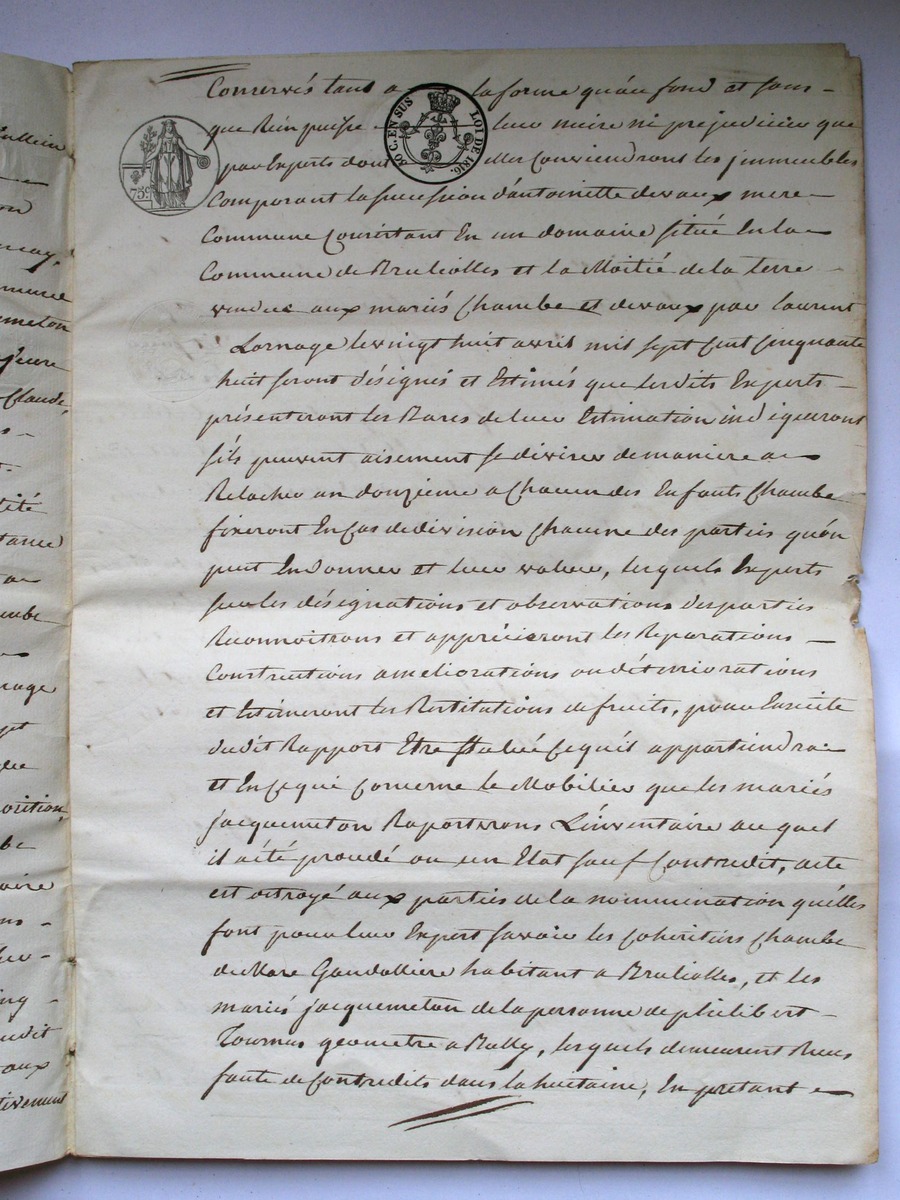 Conservés tant a la forme qu'au fond et sans –
que Rien puisse leur nuire ni prejudicier que
par Experts dont elles Conviendront les jmmeubles
Composant la succession d'antoinette devaux mere –
Commune Consistant En un domaine situé En la
Commune de Brulliolles et la Moitié de la terre
vendue aux mariés Chambe et devaux par laurent
Lornage le vingt huit avril mil sept cent Cinquante
huit seront désignés et Estimés que lesdits Experts –
présenteront les Bases de leur Estimation indiqueront
s'ils peuvent aisement se diviser de maniere a
Relacher un douzieme a Chacun des Enfants Chambe
fixeront En Cas de division Chacune des parties qu'on
peut En donner et leur valeur, lesquels Experts
sur les désignations et observations des parties
Reconnoitrons et apprécieront les Reparations –
Constructions ameliorations ou déteriorations
et Estimeront les Restitutions de fruits, pour Ensuite
dudit Rapport Etre statué Ce qu'il appartiendra
et En Ce qui Concerne le Mobilier que les mariés
jacquemeton Raporterons L'inventaire au quel
il a été procédé ou un Etat sauf Contredit, acte
est octroyé aux parties de la nommination qu'elles
font pour leur Expert savoir les Cohéritiers Chambe
de Marc Gaudollière habitant a Brulliolles, et les
mariés jacquemeton de la personne de philibert –
Tournus géometre a Bully, lesquels demeurent Reçus
faute de Contredits dans la huitaine, En pretant
75 c.
50 C. EN SUS
LOI DE 1816.
ullein
meton
Claude,
tité
tance
nage
osition,
oire
audit
aux
tivement